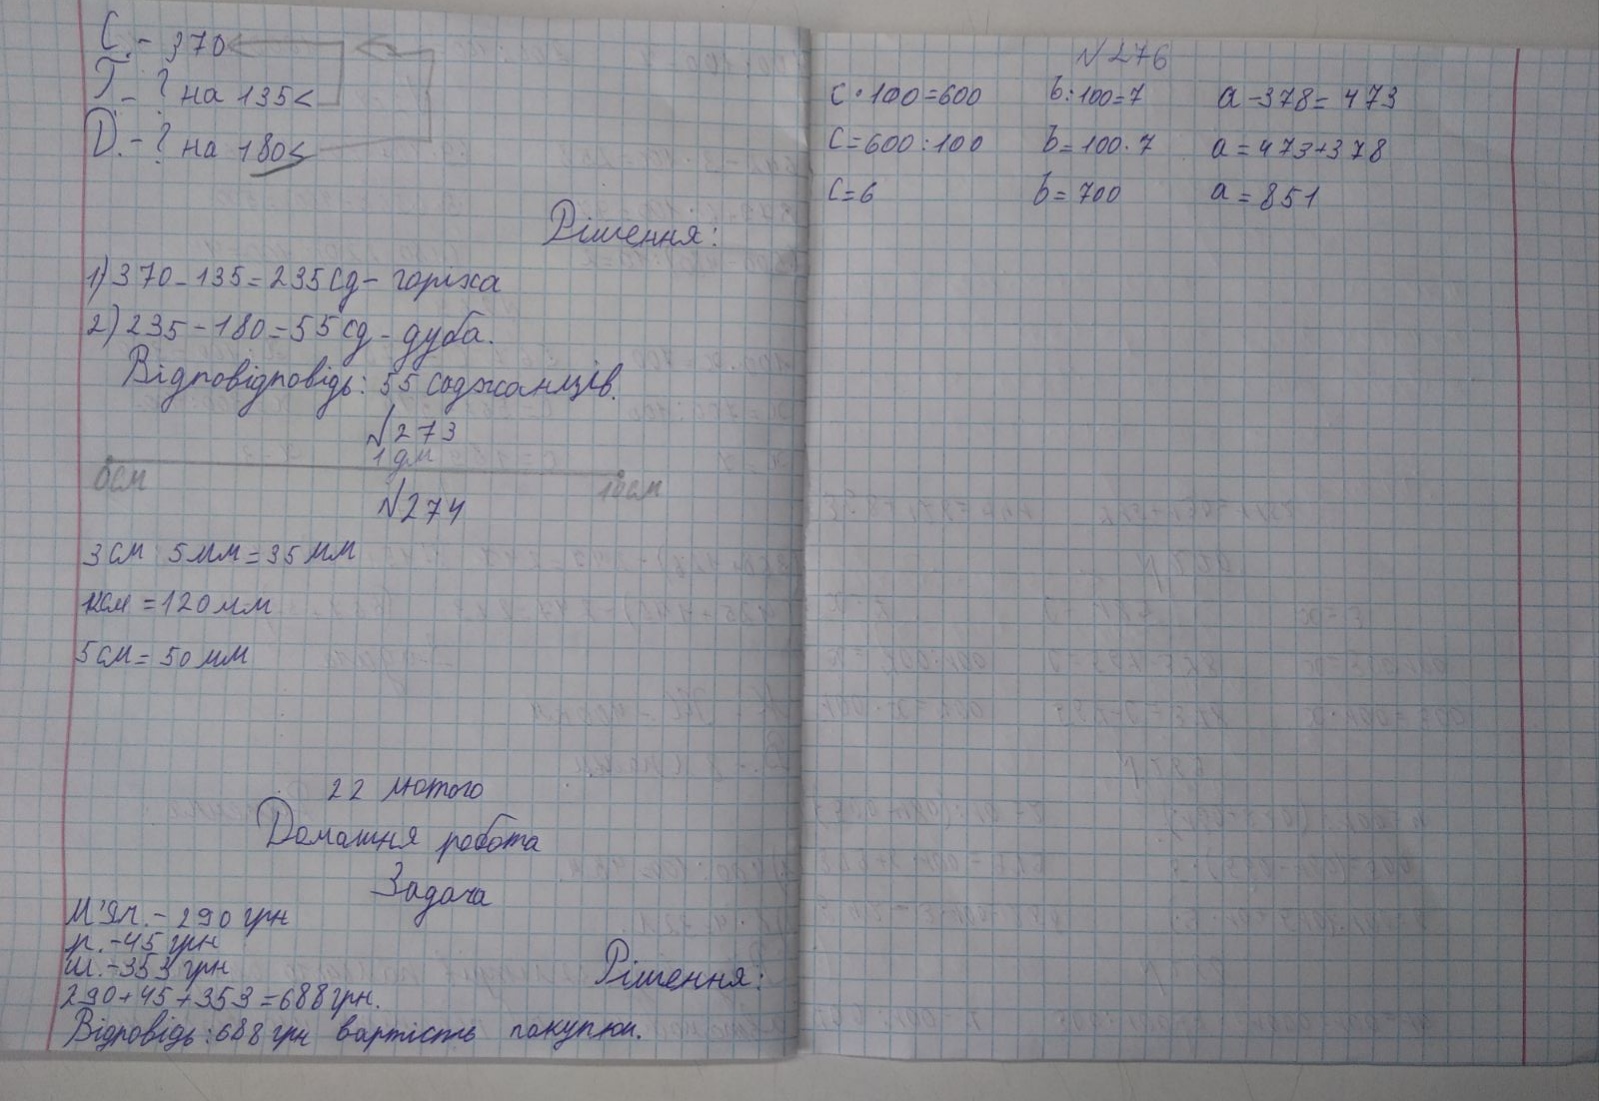 С. - 370
Г. - ? на 135<
D. - ? на 180<
Рішення:
1) 370 - 135 = 235 сд - горіха
2) 235 - 180 = 55 сд - дуба.
Відповідповідь: 55 саджанців.
№273
1 дм
0см 10см
№274
3 см 5 мм = 35 мм
12см = 120 мм
5 см = 50 мм
22 лютого
Домашня робота
Задача
М'яч. - 290 грн
р. - 45 грн
ш. - 353 грн
Рішення:
290 + 45 + 353 = 688 грн.
Відповідь: 688 грн вартість покупки.
№276
c · 100 = 600 b : 100 = 7 a - 378 = 473
c = 600 : 100 b = 100 · 7 a = 473 + 378
c = 6 b = 700 a = 851